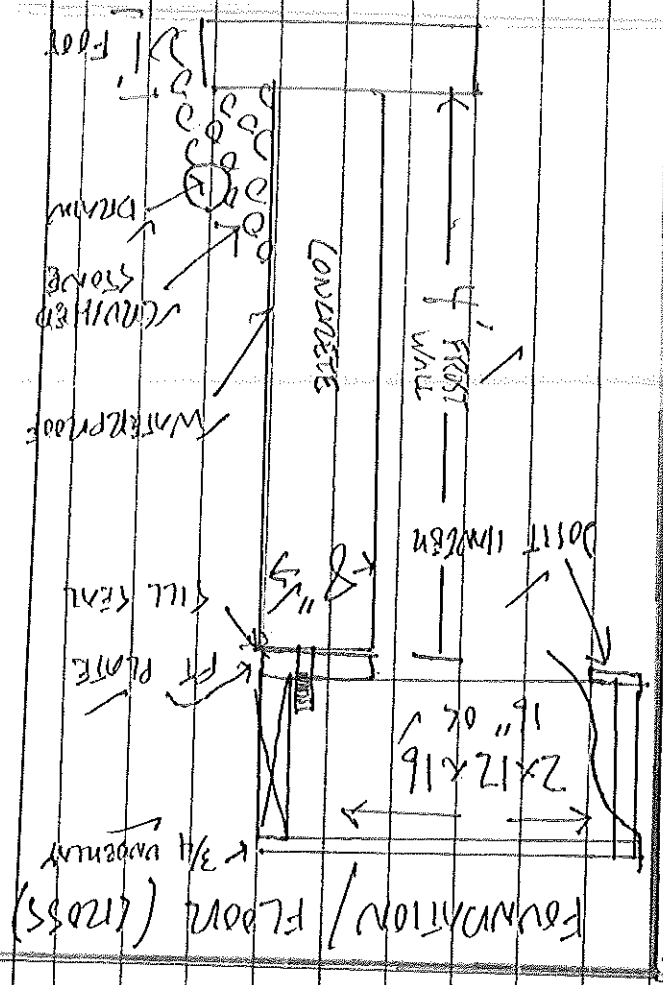 FOUNDATION / FLOOR (CROSS)
3/4 UNDERLAY
2X12X16
16" OC
PT PLATE
SILL SEAL
JOIST HANGER
8"
4' FROST
WALL
CONCRETE
WATERPROOF
CRUSHED
STONE
DRAIN
1' FOOT